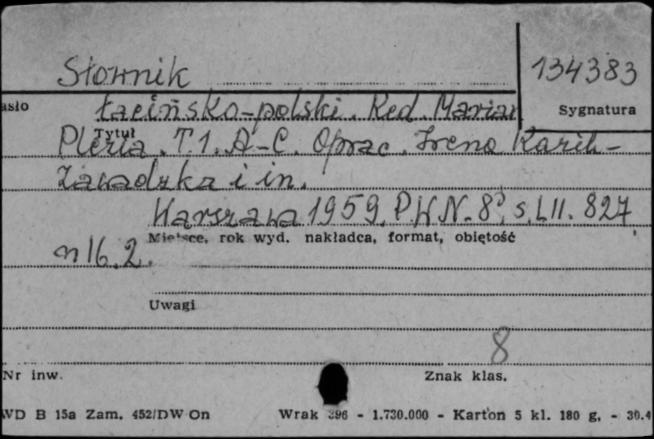 Słownik 134383
asło łacińsko-polski. Red. Marian Sygnatura
Tytuł
Plezia. T.1. A-C. Oprac. Irena Kazik-
Zawadzka i in.
Warszawa 1959. PWN. 8°, s. LII. 827
Miejsce, rok wyd. nakładca, format, obiętość
nlb. 2.
Uwagi
8
Nr inw. Znak klas.
WD B 15a Zam. 452/DW On Wrak 396 - 1.730.000 - Karton 5 kl. 180 g. - 30.4